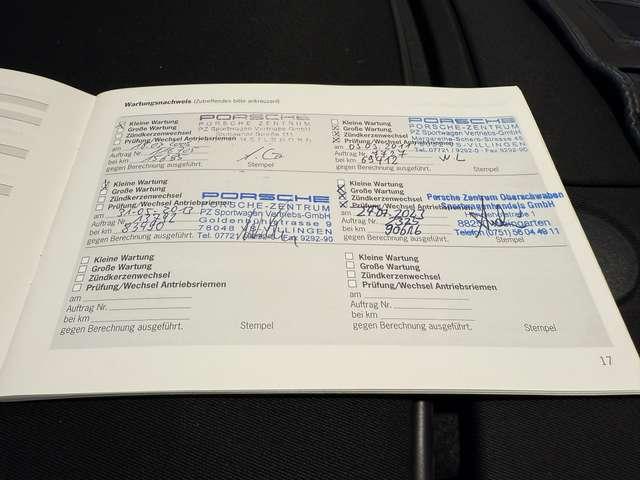 Wartungsnachweis (Zutreffendes bitte ankreuzen!)
Kleine Wartung
Große Wartung
Zündkerzenwechsel
Prüfung/Wechsel Antriebsriemen
am
Auftrag Nr.
bei km
gegen Berechnung ausgeführt.
PORSCHE
PORSCHE-ZENTRUM
PZ Sportwagen Vertriebs-GmbH
Stempel
Kleine Wartung
Große Wartung
Zündkerzenwechsel
Prüfung/Wechsel Antriebsriemen
am
Auftrag Nr.
bei km 69412
gegen Berechnung ausgeführt.
PORSCHE
PORSCHE-ZENTRUM
PZ Sportwagen Vertriebs-GmbH
VILLINGEN
Tel. 07721/9292-0 Fax 9292-90
Stempel
Kleine Wartung
Große Wartung
Zündkerzenwechsel
Prüfung/Wechsel Antriebsriemen
am 31-05-2013
Auftrag Nr.
bei km 83990
gegen Berechnung ausgeführt.
PORSCHE
PORSCHE-ZENTRUM
PZ Sportwagen Vertriebs-GmbH
Goldenbühlstrasse 9
78048 VS-VILLINGEN
Tel. 07721/9292-0 Fax 9292-90
Stempel
Kleine Wartung
Große Wartung
Zündkerzenwechsel
Prüfung/Wechsel Antriebsriemen
am
Auftrag Nr.
bei km 90616
gegen Berechnung ausgeführt.
Porsche Zentrum Oberschwaben
Sportwagenhandels GmbH
Weingarten
Telefon (0751) 56 04 49 11
Stempel
Kleine Wartung
Große Wartung
Zündkerzenwechsel
Prüfung/Wechsel Antriebsriemen
am
Auftrag Nr.
bei km
gegen Berechnung ausgeführt.
Stempel
Kleine Wartung
Große Wartung
Zündkerzenwechsel
Prüfung/Wechsel Antriebsriemen
am
Auftrag Nr.
bei km
gegen Berechnung ausgeführt.
Stempel
17